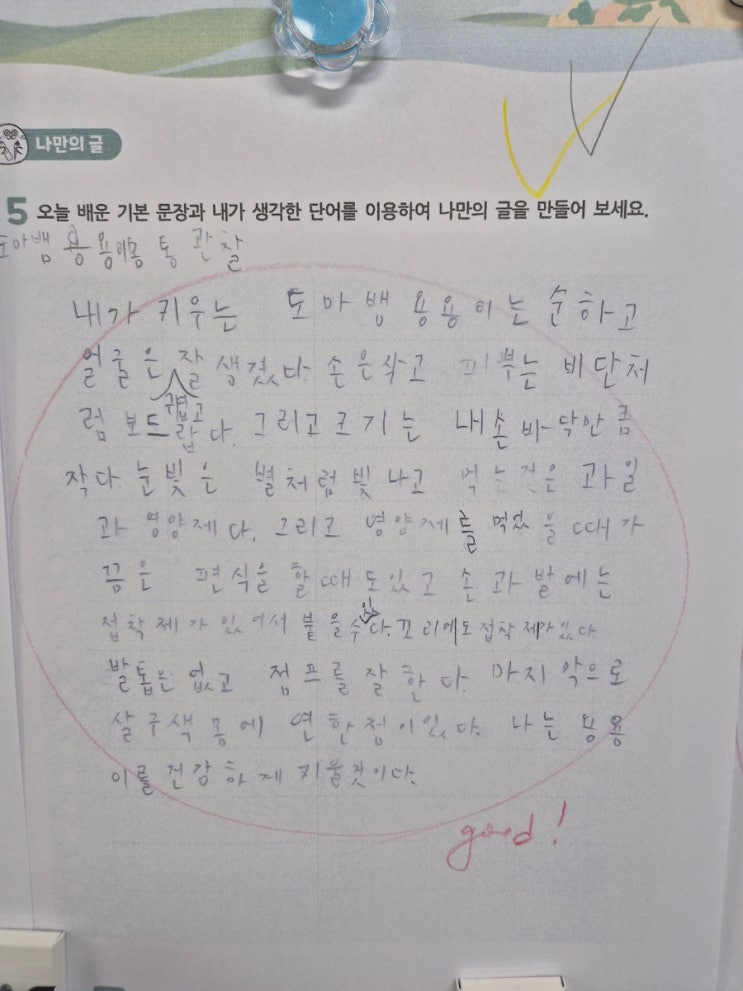 나만의 글
5 오늘 배운 기본 문장과 내가 생각한 단어를 이용하여 나만의 글을 만들어 보세요.
도마뱀 용용이몸 통 관찰
내가 키우는 도마뱀 용용이는 순하고
얼굴은 잘 생겼다. 손은작고 피뿌는 비단처
귀엽고
럼 보드랍다. 그리고크기는 내손바닥만큼
작다 눈빛은 별처럼빛나고 먹는것은 과일
과 영양제다. 그리고 영양제를 먹었을때가
끔은 편식을 할때도있고 손과발에는
접착제가있어서 붙을수있다. 꼬리에도접착제가있다
발톱은 없고 점프를 잘한다. 마지막으로
살구색 몸에 연한점이있다. 나는 용용
이를건강하게키울것이다.
good!